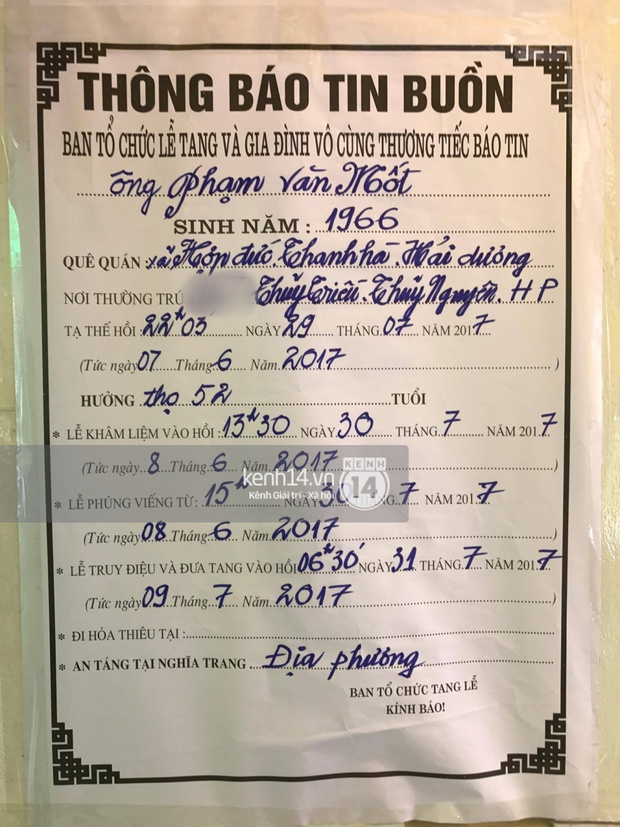 THÔNG BÁO TIN BUỒN
BAN TỔ CHỨC LỄ TANG VÀ GIA ĐÌNH VÔ CÙNG THƯƠNG TIẾC BÁO TIN
ông Phạm Văn Mốt
SINH NĂM : 1966
QUÊ QUÁN : xã Hợp đức Thanh hà. Hải dương
NƠI THƯỜNG TRÚ Thủy Triều. Thủy Nguyên. HP
TẠ THẾ HỒI : 22h03 NGÀY 29 THÁNG 07 NĂM 2017
(Tức ngày 07 Tháng 6 Năm 2017)
HƯỞNG thọ 52 TUỔI
* LỄ KHÂM LIỆM VÀO HỒI : 13h30 NGÀY 30 THÁNG 7 NĂM 2017
(Tức ngày 8 Tháng 6 Năm 2017)
kenh14.vn
Kênh Giải trí - Xã hội
KENH 14
* LỄ PHÚNG VIẾNG TỪ : 15h NGÀY 30 THÁNG 7 NĂM 2017
(Tức ngày 08 Tháng 6 Năm 2017)
* LỄ TRUY ĐIỆU VÀ ĐƯA TANG VÀO HỒI 06h30' NGÀY 31 THÁNG 7 NĂM 2017
(Tức ngày 09 Tháng 7 Năm 2017)
* ĐI HỎA THIÊU TẠI :
* AN TÁNG TẠI NGHĨA TRANG Địa phương
BAN TỔ CHỨC TANG LỄ
KÍNH BÁO!